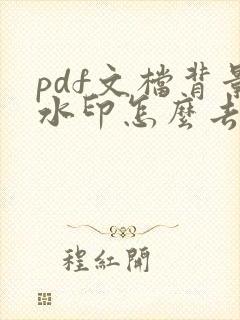 pdf文檔背景
水印怎麼去
程紅開